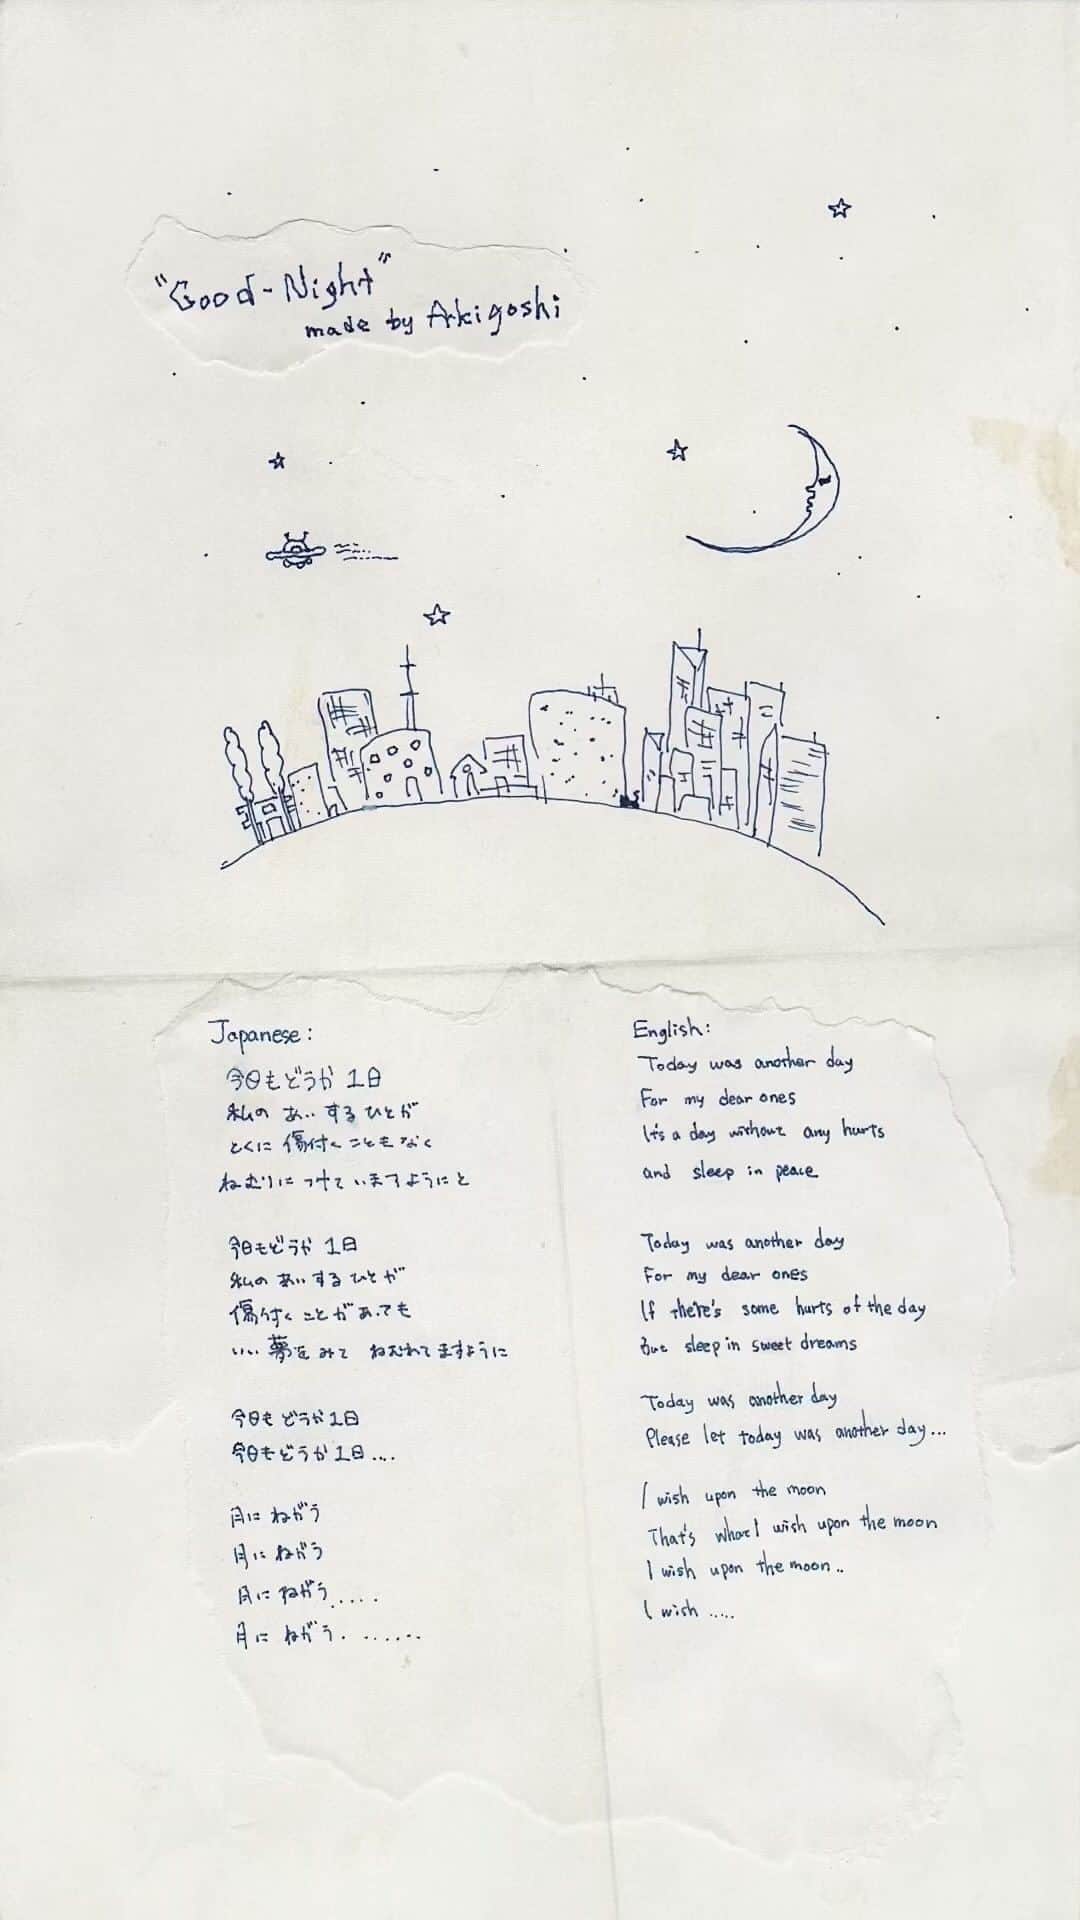 "Good-Night"
made by Akigoshi
Japanese:
今日もどうか 1日
私の あいするひとが
とくに 傷付くこともなく
ねむりにつけていますようにと
今日もどうか 1日
私の あいするひとが
傷付くことがあっても
いい夢をみて ねむれてますように
今日もどうか1日
今日もどうか1日....
月に ねがう
月に ねがう
月に ねがう.....
月に ねがう.......
English:
Today was another day
For my dear ones
It's a day without any hurts
and sleep in peace
Today was another day
For my dear ones
If there's some hurts of the day
But sleep in sweet dreams
Today was another day
Please let today was another day...
I wish upon the moon
That's what I wish upon the moon
I wish upon the moon..
I wish .....